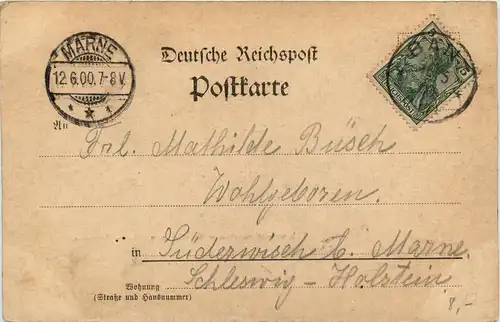 MARNE
12.6.00.7-8V.
Deutsche Reichspost
Postkarte
An
Frl. Mathilde Büsch
Wohlgeboren.
in Süderwisch b. Marne.
Schleswig-Holstein
Wohnung
(Straße und Hausnummer)
8,-